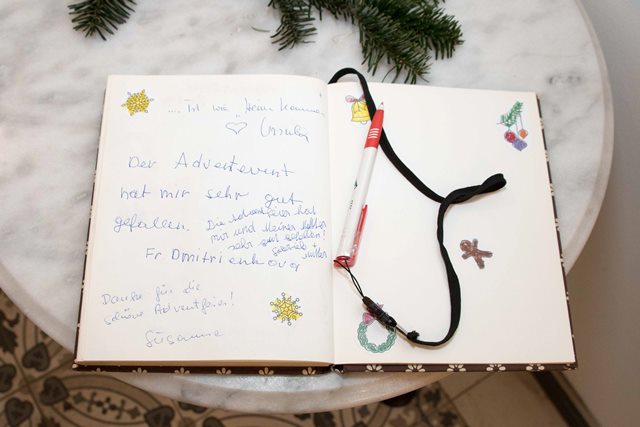 .... Ist wie Heim kommen
♡ Ursula
Der Adventevent
hat mir sehr gut
gefallen.
Die Adventfeier hat
mir und meiner Mutter
sehr gut gefallen!
Gabriele + Mutter
Fr Dmitrienkova
Danke für die
schöne Adventfeier!
Susanne